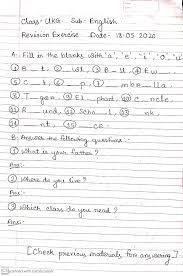 Class- UKG Sub- English
Revision Exercise Date- 18.05.2020
A. Fill in the blanks with 'a', 'e', 'i', 'o', 'u'
① B_t, ② _wl, ③ B_ll ④ E w_
⑤ C_t, ⑥ c_p, ⑦ _mbr_lla.
⑧ T_ger ⑨ El_phant, ⑩ C_ndle.
⑪ R_und, ⑫ s_nk, ⑬ _nk
⑭ _nt, ⑮ _ce
B. Answer the following questions:-
① What is your father?
Ans:-
② Where do you live?
Ans:-
③ Which class do you read?
Ans:-
[Check previous materials for answering]